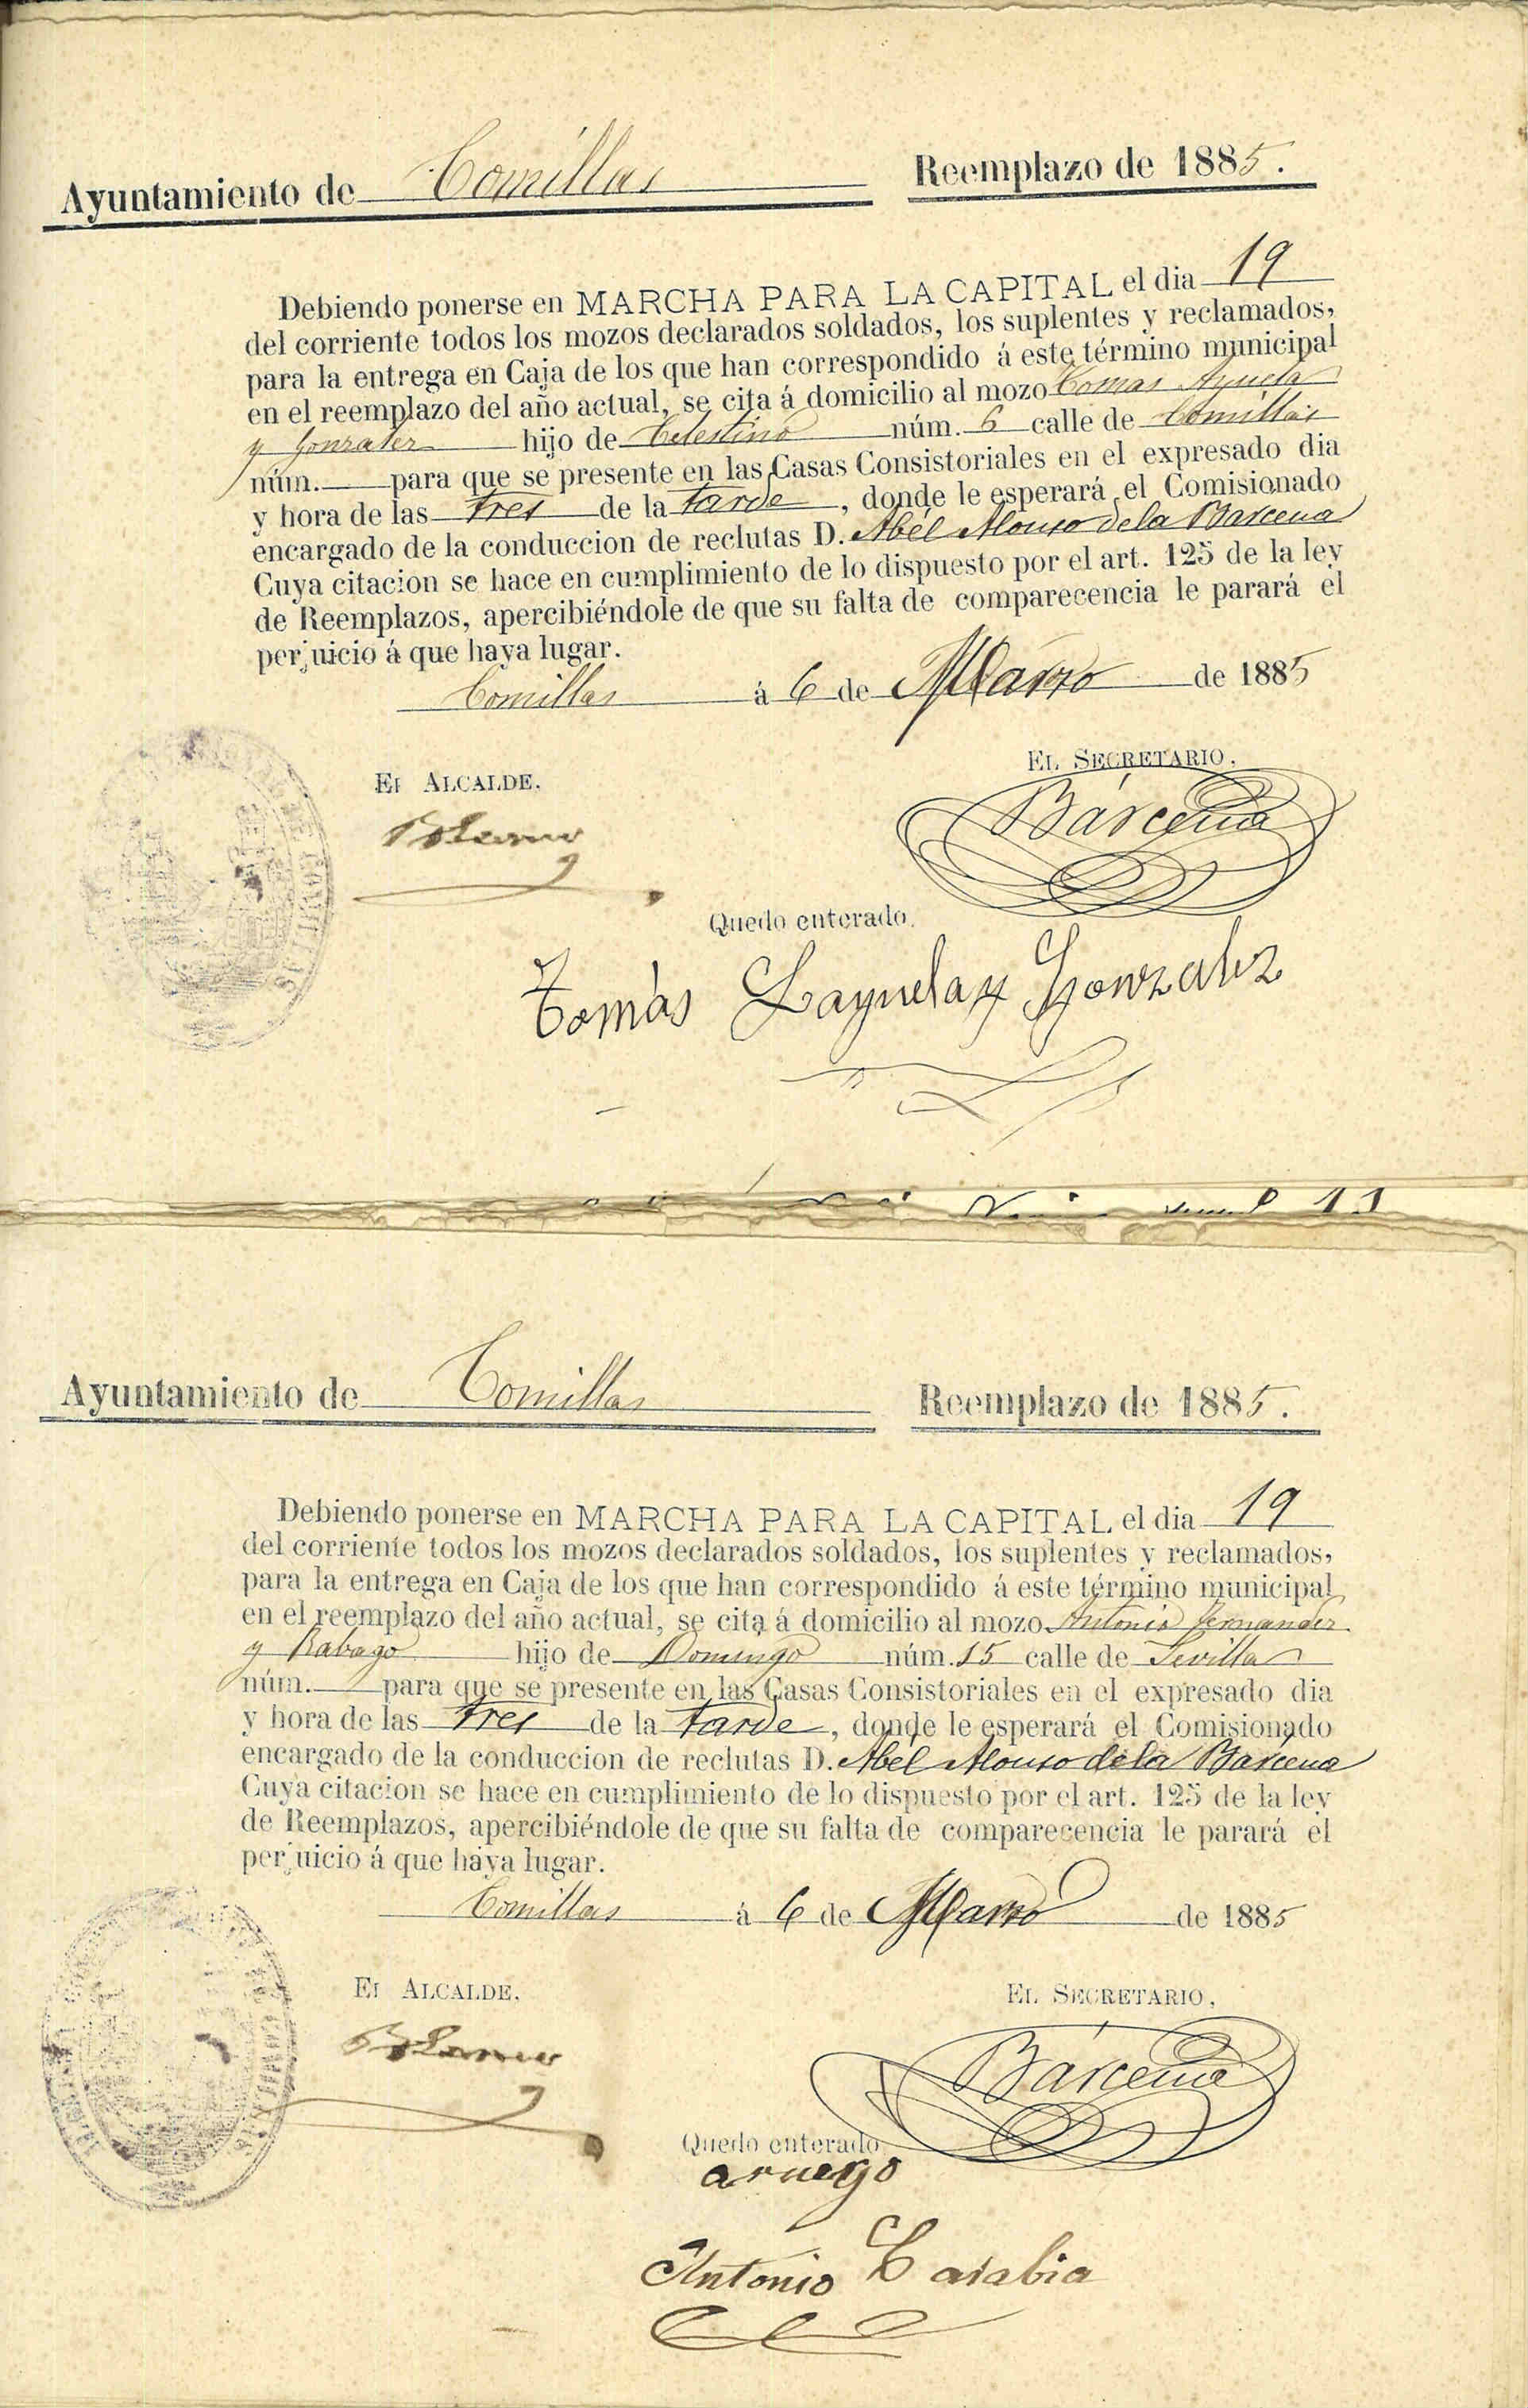 Ayuntamiento de Comillas Reemplazo de 1885.
Debiendo ponerse en MARCHA PARA LA CAPITAL el dia 19
del corriente todos los mozos declarados soldados, los suplentes y reclamados,
para la entrega en Caja de los que han correspondido á este término municipal
en el reemplazo del año actual, se cita á domicilio al mozo Tomas Ayuela
y Gonzalez hijo de Celestino núm. 6 calle de Comillas
núm. para que se presente en las Casas Consistoriales en el expresado dia
y hora de las tres de la tarde, donde le esperará el Comisionado
encargado de la conduccion de reclutas D. Abél Alonso de la Barcena
Cuya citacion se hace en cumplimiento de lo dispuesto por el art. 125 de la ley
de Reemplazos, apercibiéndole de que su falta de comparecencia le parará el
perjuicio á que haya lugar.
Comillas á 6 de Marzo de 1885
El Alcalde. El Secretario,
Bárcena
Quedo enterado.
Tomás Layuela y Gonzalez
Ayuntamiento de Comillas Reemplazo de 1885.
Debiendo ponerse en MARCHA PARA LA CAPITAL el dia 19
del corriente todos los mozos declarados soldados, los suplentes y reclamados,
para la entrega en Caja de los que han correspondido á este término municipal
en el reemplazo del año actual, se cita á domicilio al mozo Antonio Fernandez
y Rabago hijo de Domingo núm. 15 calle de Sevilla
núm. para que se presente en las Casas Consistoriales en el expresado dia
y hora de las tres de la tarde, donde le esperará el Comisionado
encargado de la conduccion de reclutas D. Abél Alonso de la Barcena
Cuya citacion se hace en cumplimiento de lo dispuesto por el art. 125 de la ley
de Reemplazos, apercibiéndole de que su falta de comparecencia le parará el
perjuicio á que haya lugar.
Comillas á 6 de Marzo de 1885
El Alcalde. El Secretario,
Bárcena
Quedo enterado.
aruego
Antonio Sarabia